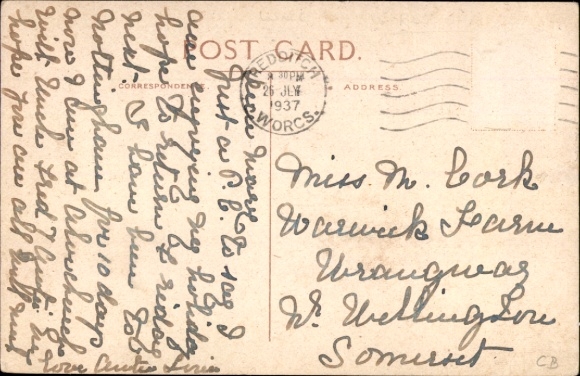 POST CARD.
CORRESPONDENCE.
ADDRESS.
REDDITCH
30PM
26 JLY
1937
WORCS.
Dear Mary
Just a P.C. to say I
am enjoying my holiday
hope to return Friday
next. I have been to
Nottingham for 10 days
now I am at
with Uncle Fred & Auntie
hope you are all well
love Auntie
Miss M. Cork
Warwick Farm
Wrangway
Nr. Wellington
Somerset
CB